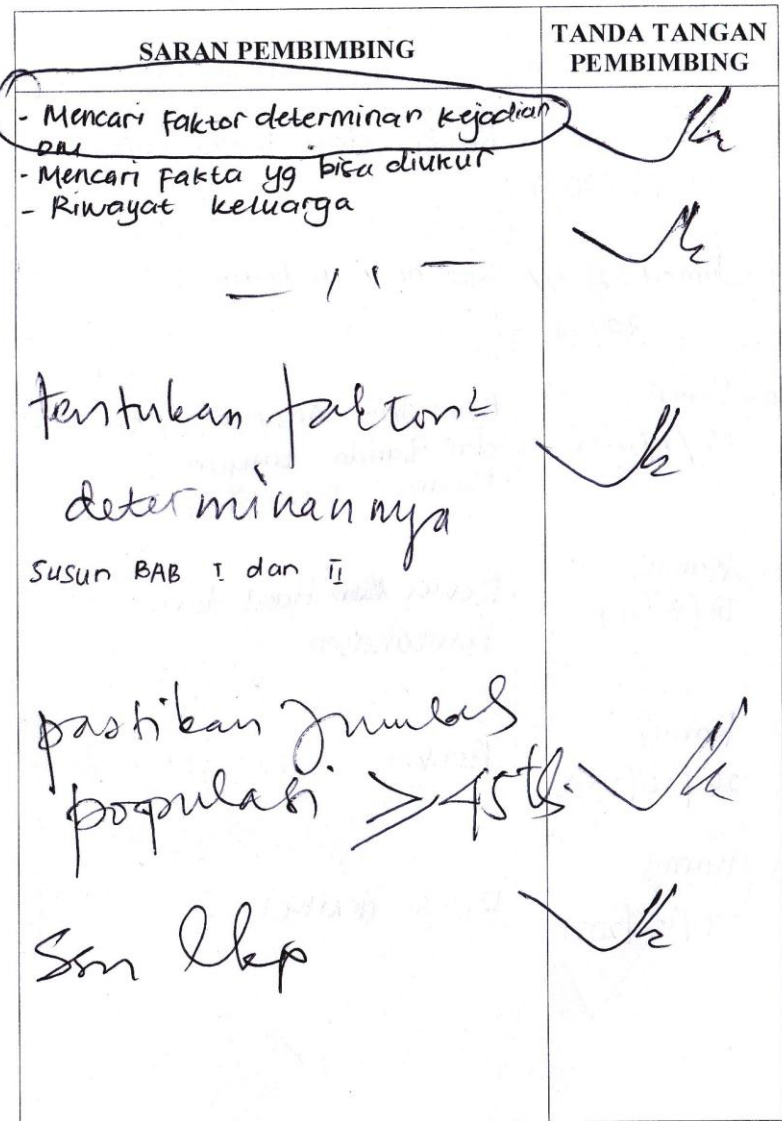 SARAN PEMBIMBING
TANDA TANGAN
PEMBIMBING
- Mencari faktor determinan kejadian
DM
- Mencari fakta yg bisa diukur
- Riwayat keluarga
— ,, —
tentukan faktor²
determinannya
Susun BAB I dan II
pastikan jumlah
populasi ≥ 45 th.
Ssn lkp